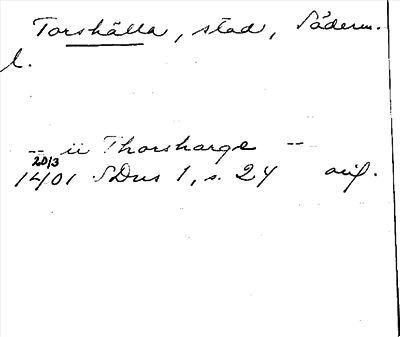 Torshälla, stad, Söderm.
l.
-- ii Thorsharge --
20/3
1401 SDns 1, s. 24 orig.